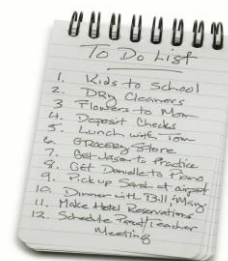 To Do List
1. Kids to School
2. DRy Cleaners
3 Flowers to Mom
4. Deposit Checks
5. Lunch with Tom
6. GROCERY Store
7. Get Jason to Practice
8. Get Danielle to Piano
9. Pick up Sarah at airport
10. Dinner with Bill & Mary
11. Make Hotel Reservations
12. Schedule Parent/Teacher
Meeting